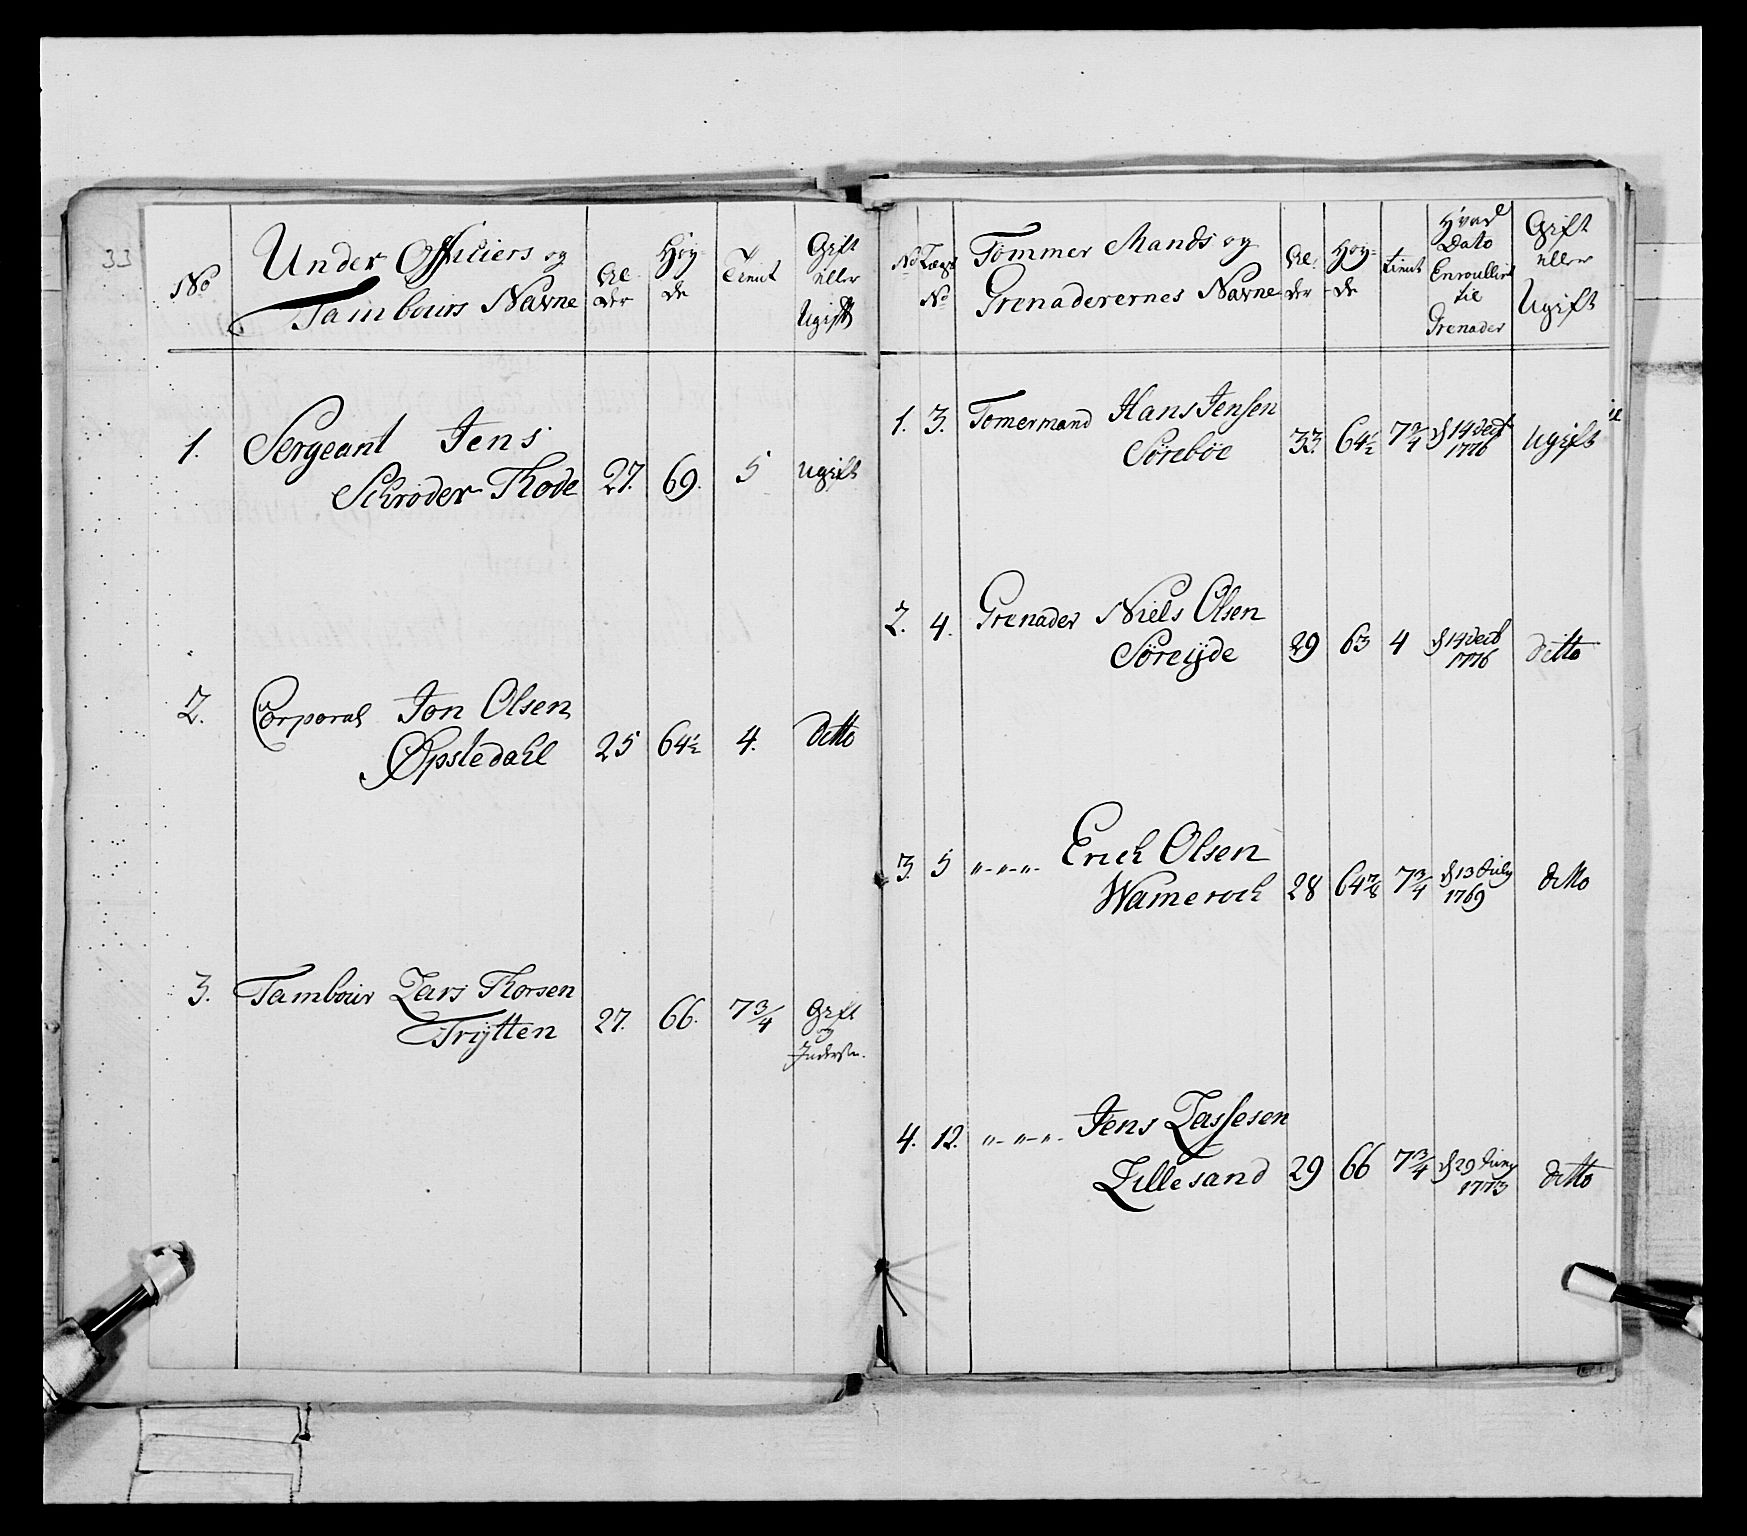 33
No
Under Officiers og
Tambours Navne
Al
der
Høy
de
Tient
Gift
eller
Ugift
1.
Sergeant Jens
Schrøder Thode
27.
69.
5
Ugift
2.
Corporal Jon Olsen
Øpstedahl
25
64½
4.
ditto
3.
Tambour Lars Thorsen
Trÿtten
27.
66.
7¾
Gift
og
No
Lægs
No
Tømmer Mands og
Grenaderernes Navne
Al
der
Høy
de
tient
Hvad
Dato
Enroullirt
til
Grenader
Gift
eller
Ugift
1.
3.
Tømermand Hans Jensen
Sørebøe
33.
64½
7¾
d 14 decb
1776
Ugift
2.
4.
Grenader Niels Olsen
Søreÿde
29
63
4
d 14 decb
1776
ditto
3.
5
"-"-"- Erich Olsen
Wameroch
28
64⅞
7¾
d 13 July
1769
ditto
4.
12.
"-"-"- Jens Lassesen
Lillesand
29
66
7¾
d 29 Juny
1773
ditto